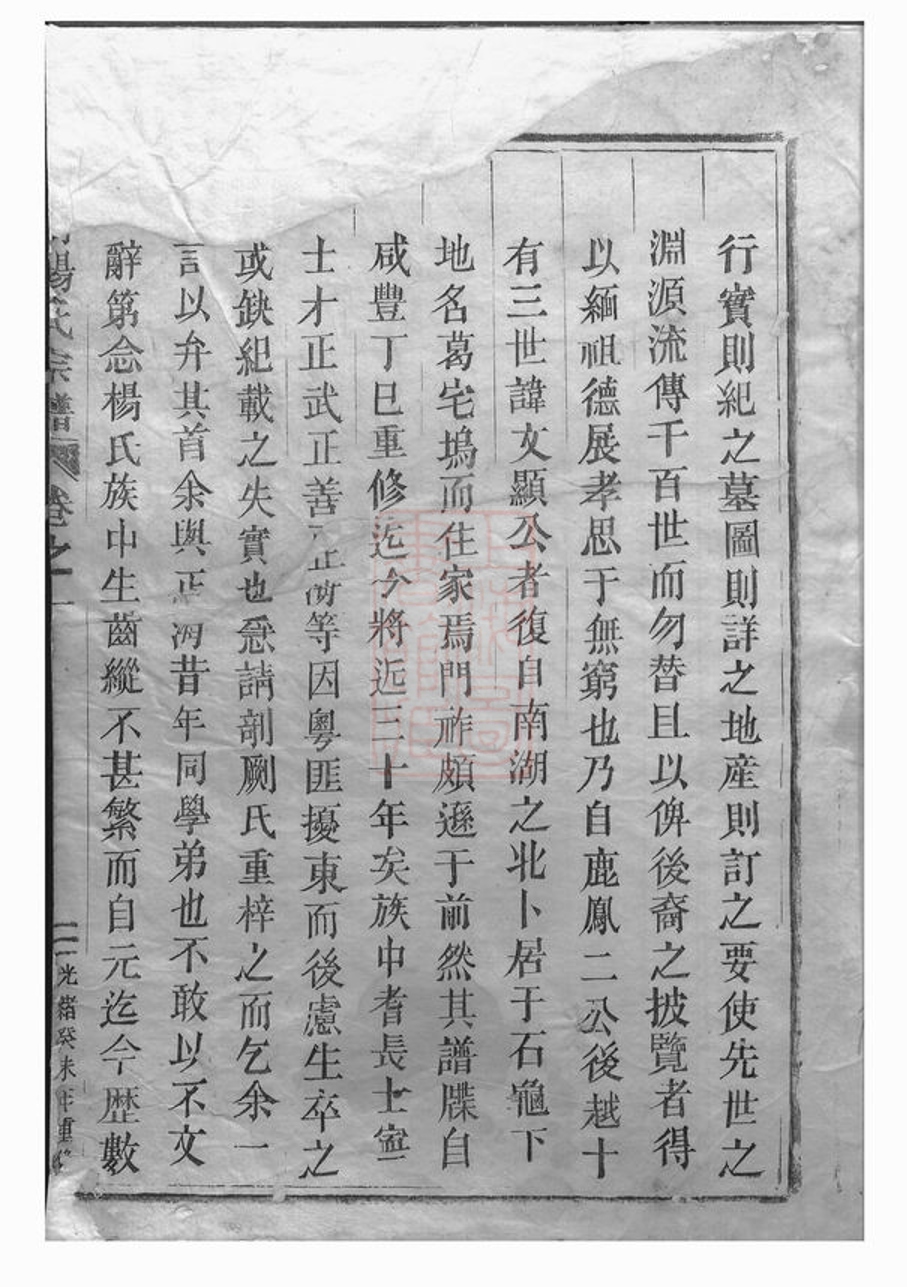 行實則紀之墓圖則詳之地産則訂之要使先世之
淵源流傳千百世而勿替且以俾後裔之披覽者得
以緬祖德展孝思于無窮也乃自鹿鳳二公後越十
有三世諱文顯公者復自南湖之北卜居于石龜下
地名葛宅塢而住家焉門祚頗遜于前然其譜牒自
咸豐丁巳重修迄今將近三十年矣族中耆長士寧
士才正武正善正等因粵匪擾東而後慮生卒之
或缺紀載之失實也急請剞劂氏重梓之而乞余一
言以弁其首余與正昔年同學弟也不敢以不文
辭第念楊氏族中生齒縱不甚繁而自元迄今歴數
楊氏宗譜 卷之一 二 光緒癸未年重修